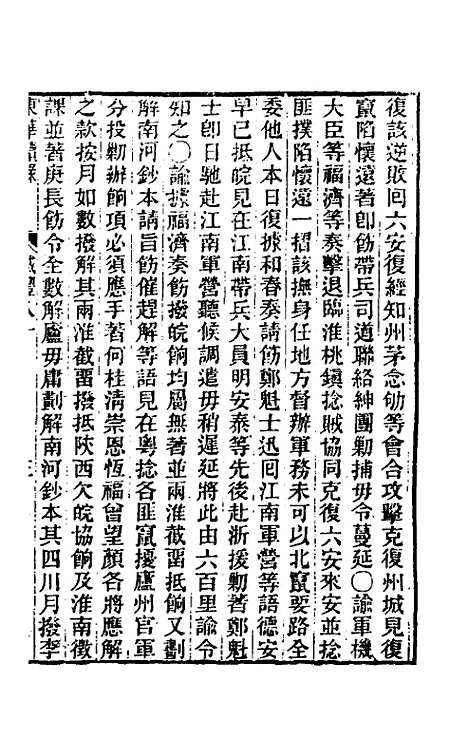 復該逆敗囘六安復經知州茅念劬等會合攻擊克復州城見復
竄陷懷遠著卽飭帶兵司道聯絡紳團勦捕毋令蔓延〇諭軍機
大臣等福濟等奏擊退臨淮桃鎮捻賊協同克復六安來安並捻
匪撲陷懷遠一摺該撫身任地方督辦軍務未可以北竄要路全
委他人本日復據和春奏請飭鄭魁士迅囘江南軍營等語德安
早已抵皖見在江南帶兵大員明安泰等先後赴浙援勦著鄭魁
士卽日馳赴江南軍營聽候調遣毋稍遲延將此由六百里諭令
知之〇諭據福濟奏飭撥皖餉均屬無著並兩淮截畱抵餉又劃
解南河鈔本請旨飭催趕解等語見在粵捻各匪竄擾廬州官軍
分投勦辦餉項必須應手著何桂清崇恩恆福曾望顏各將應解
之款按月如數撥解其兩淮截畱撥抵陜西欠皖協餉及淮南徵
課並著庚長飭令全數解廬毋庸劃解南河鈔本其四川月撥李
東華續錄 咸豐八十